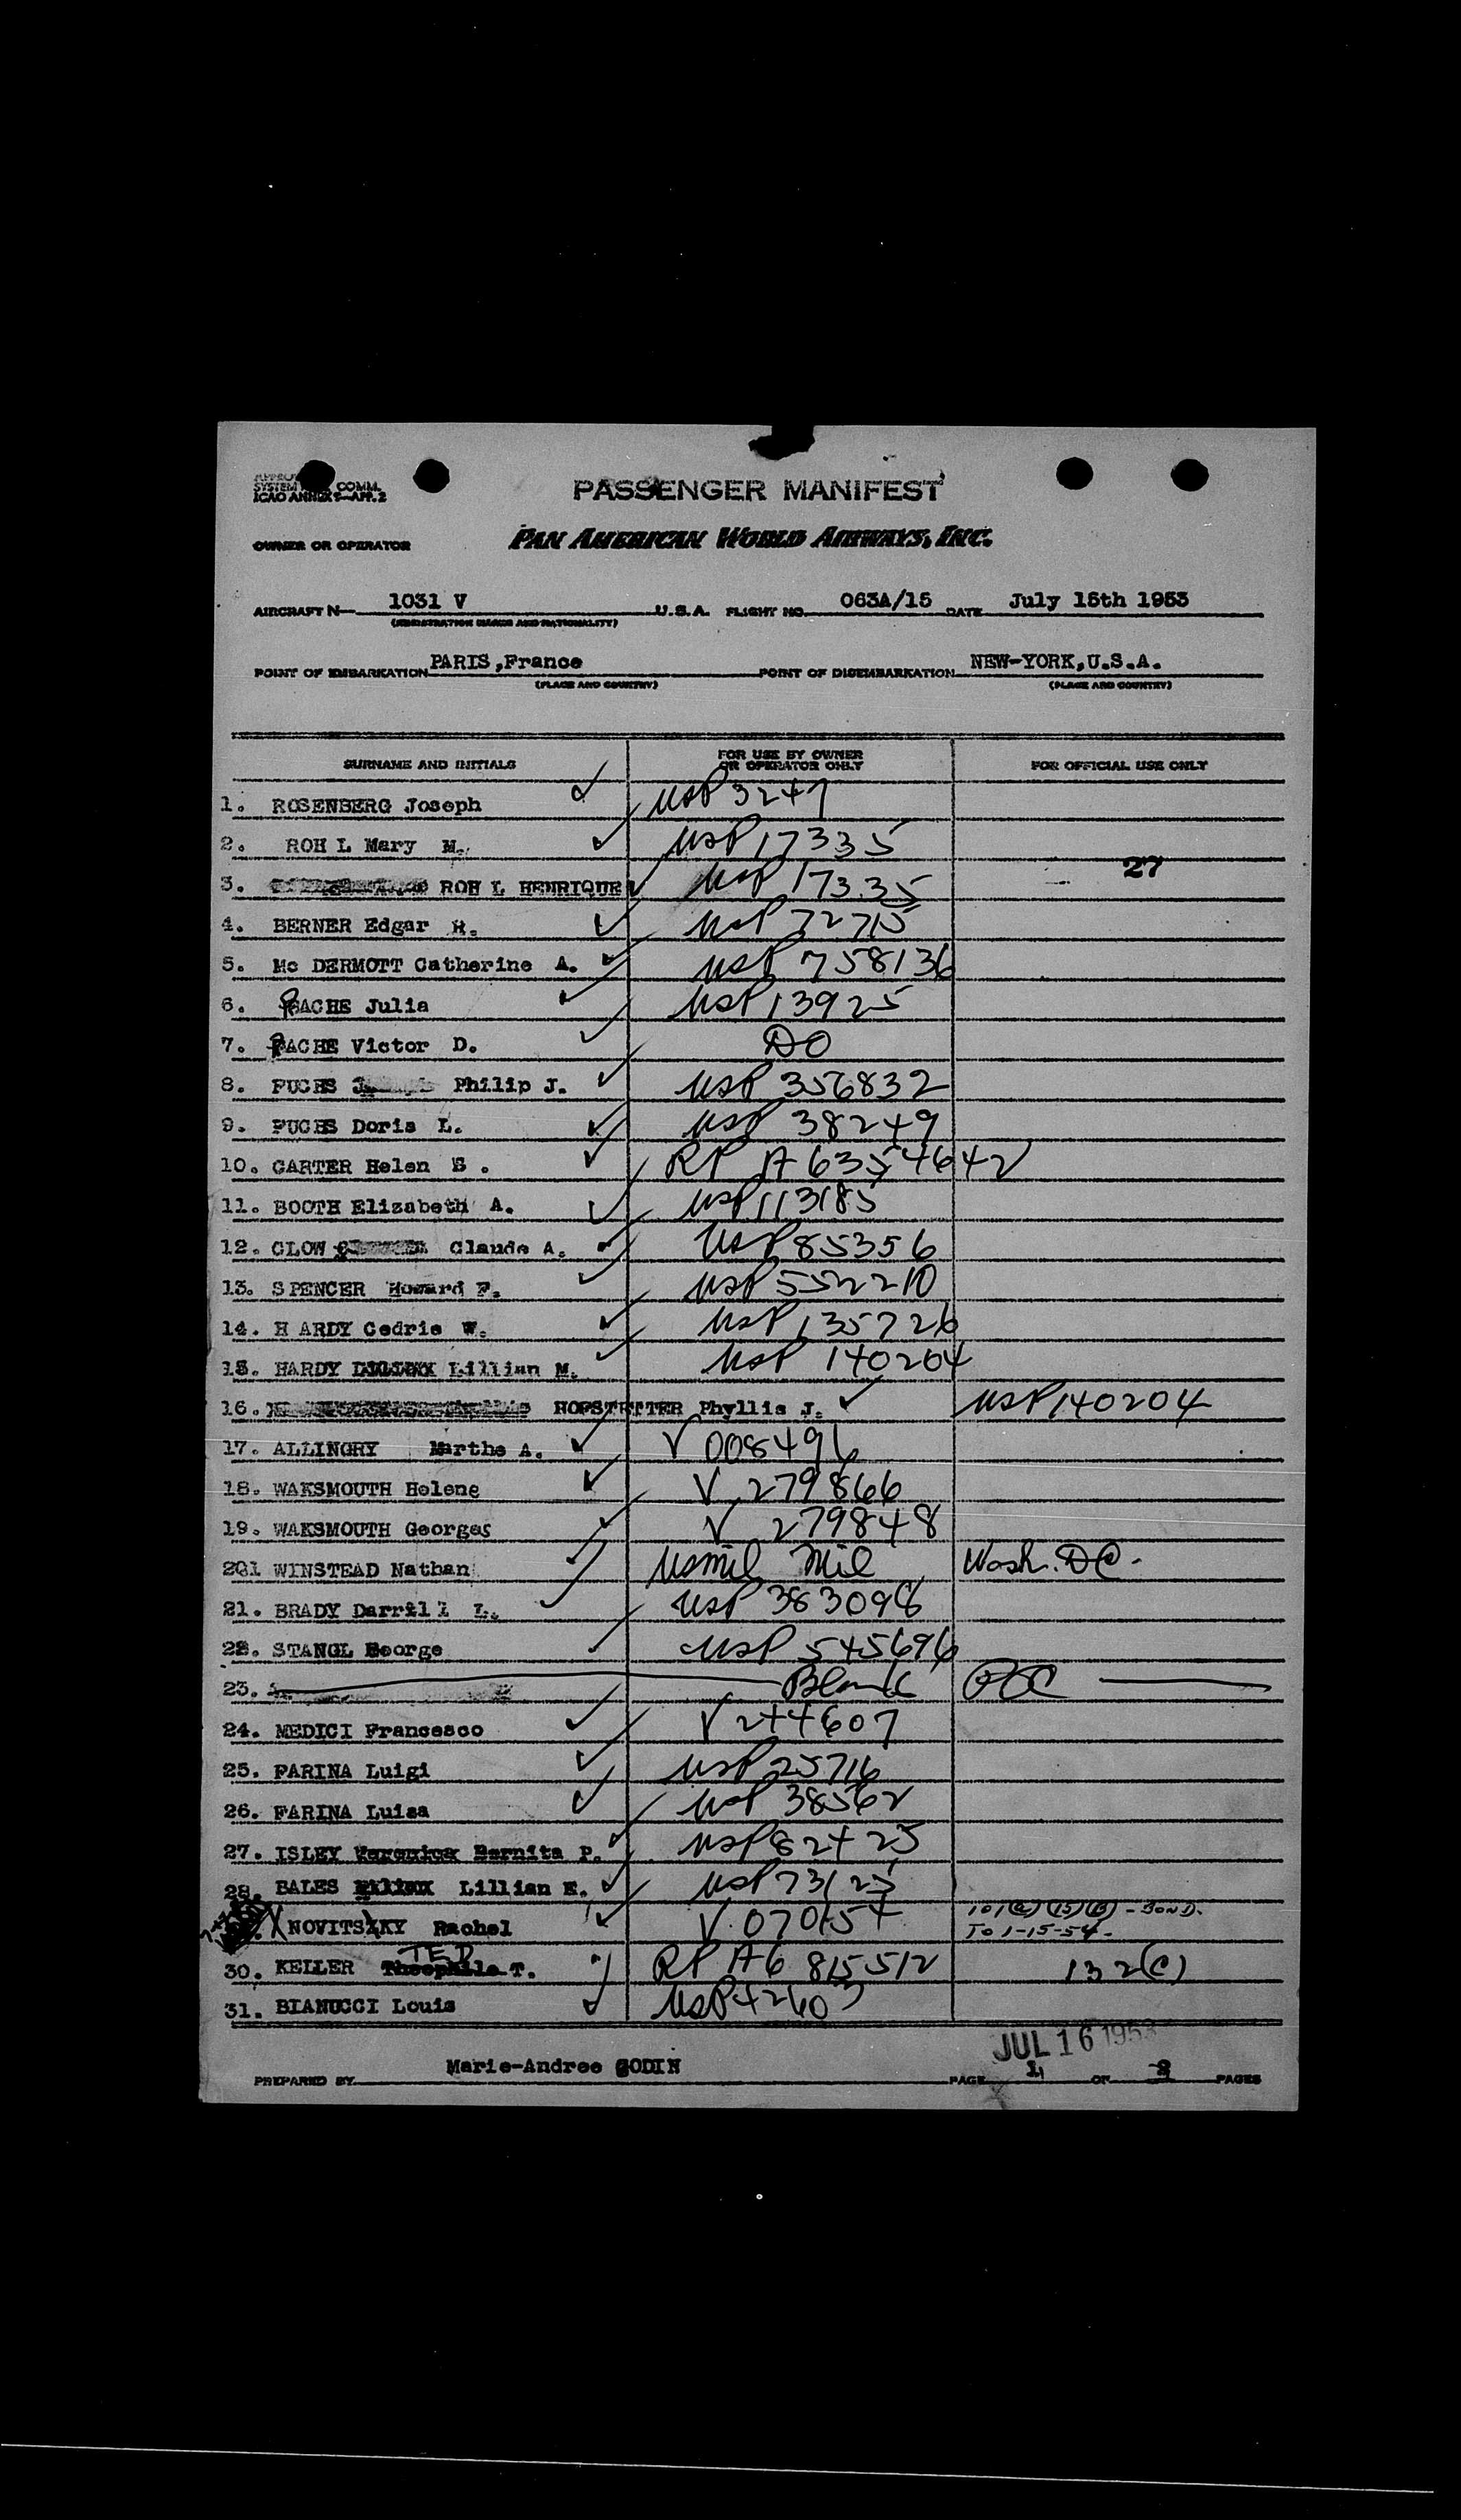 SYSTEM COMM.
ICAO ANNEX 9—APP. 2
PASSENGER MANIFEST
OWNER OR OPERATOR PAN AMERICAN WORLD AIRWAYS, INC.
AIRCRAFT N— 1031 V U.S.A. FLIGHT NO. 063A/15 DATE July 15th 1953
(REGISTRATION MARKS AND NATIONALITY)
POINT OF EMBARKATION PARIS,France POINT OF DISEMBARKATION NEW-YORK,U.S.A.
(PLACE AND COUNTRY) (PLACE AND COUNTRY)
SURNAME AND INITIALS FOR USE BY OWNER OR OPERATOR ONLY FOR OFFICIAL USE ONLY
1. ROSENBERG Joseph USP 3247
2. ROH L Mary M. USP 17335
27
3. ROH L HENRIQUE USP 17335
4. BERNER Edgar R. USP 72715
5. Mc DERMOTT Catherine A. USP 758136
6. PACHE Julia USP 13925
7. PACHE Victor D. DO
8. FUCHS Philip J. USP 356832
9. FUCHS Doris L. USP 38249
10. CARTER Helen S. RP A6354642
11. BOOTH Elizabeth A. USP 113185
12. CLOW Claude A. USP 85356
13. SPENCER Howard F. USP 552210
14. H ARDY Cedric W. USP 135726
15. HARDY Lillian M. USP 140204
16. HOFSTETTER Phyllis J. USP 140204
17. ALLINGRY Marthe A. V 008496
18. WAKSMOUTH Helene V 279866
19. WAKSMOUTH Georges V 279848
201 WINSTEAD Nathan USmil Mil Wash. DC-
21. BRADY Darrell L. USP 383098
22. STANGL George USP 545696
23. Blank
24. MEDICI Francesco V 244607
25. FARINA Luigi USP 25716
26. FARINA Luisa USP 38562
27. ISLEY Bernita P. USP 82425
28. BALES Lillian E. USP 73125
X NOVITSKY Rachel V. 070154 101(a)(15)(B) - BOND.
To 1-15-54.
TED
30. KELLER Theophile T. RP A6 815512 132(C)
31. BIANUCCI Louis USP 42603
JUL 16 1953
PREPARED BY Marie-Andree GODIN PAGE 1 OF 2 PAGES